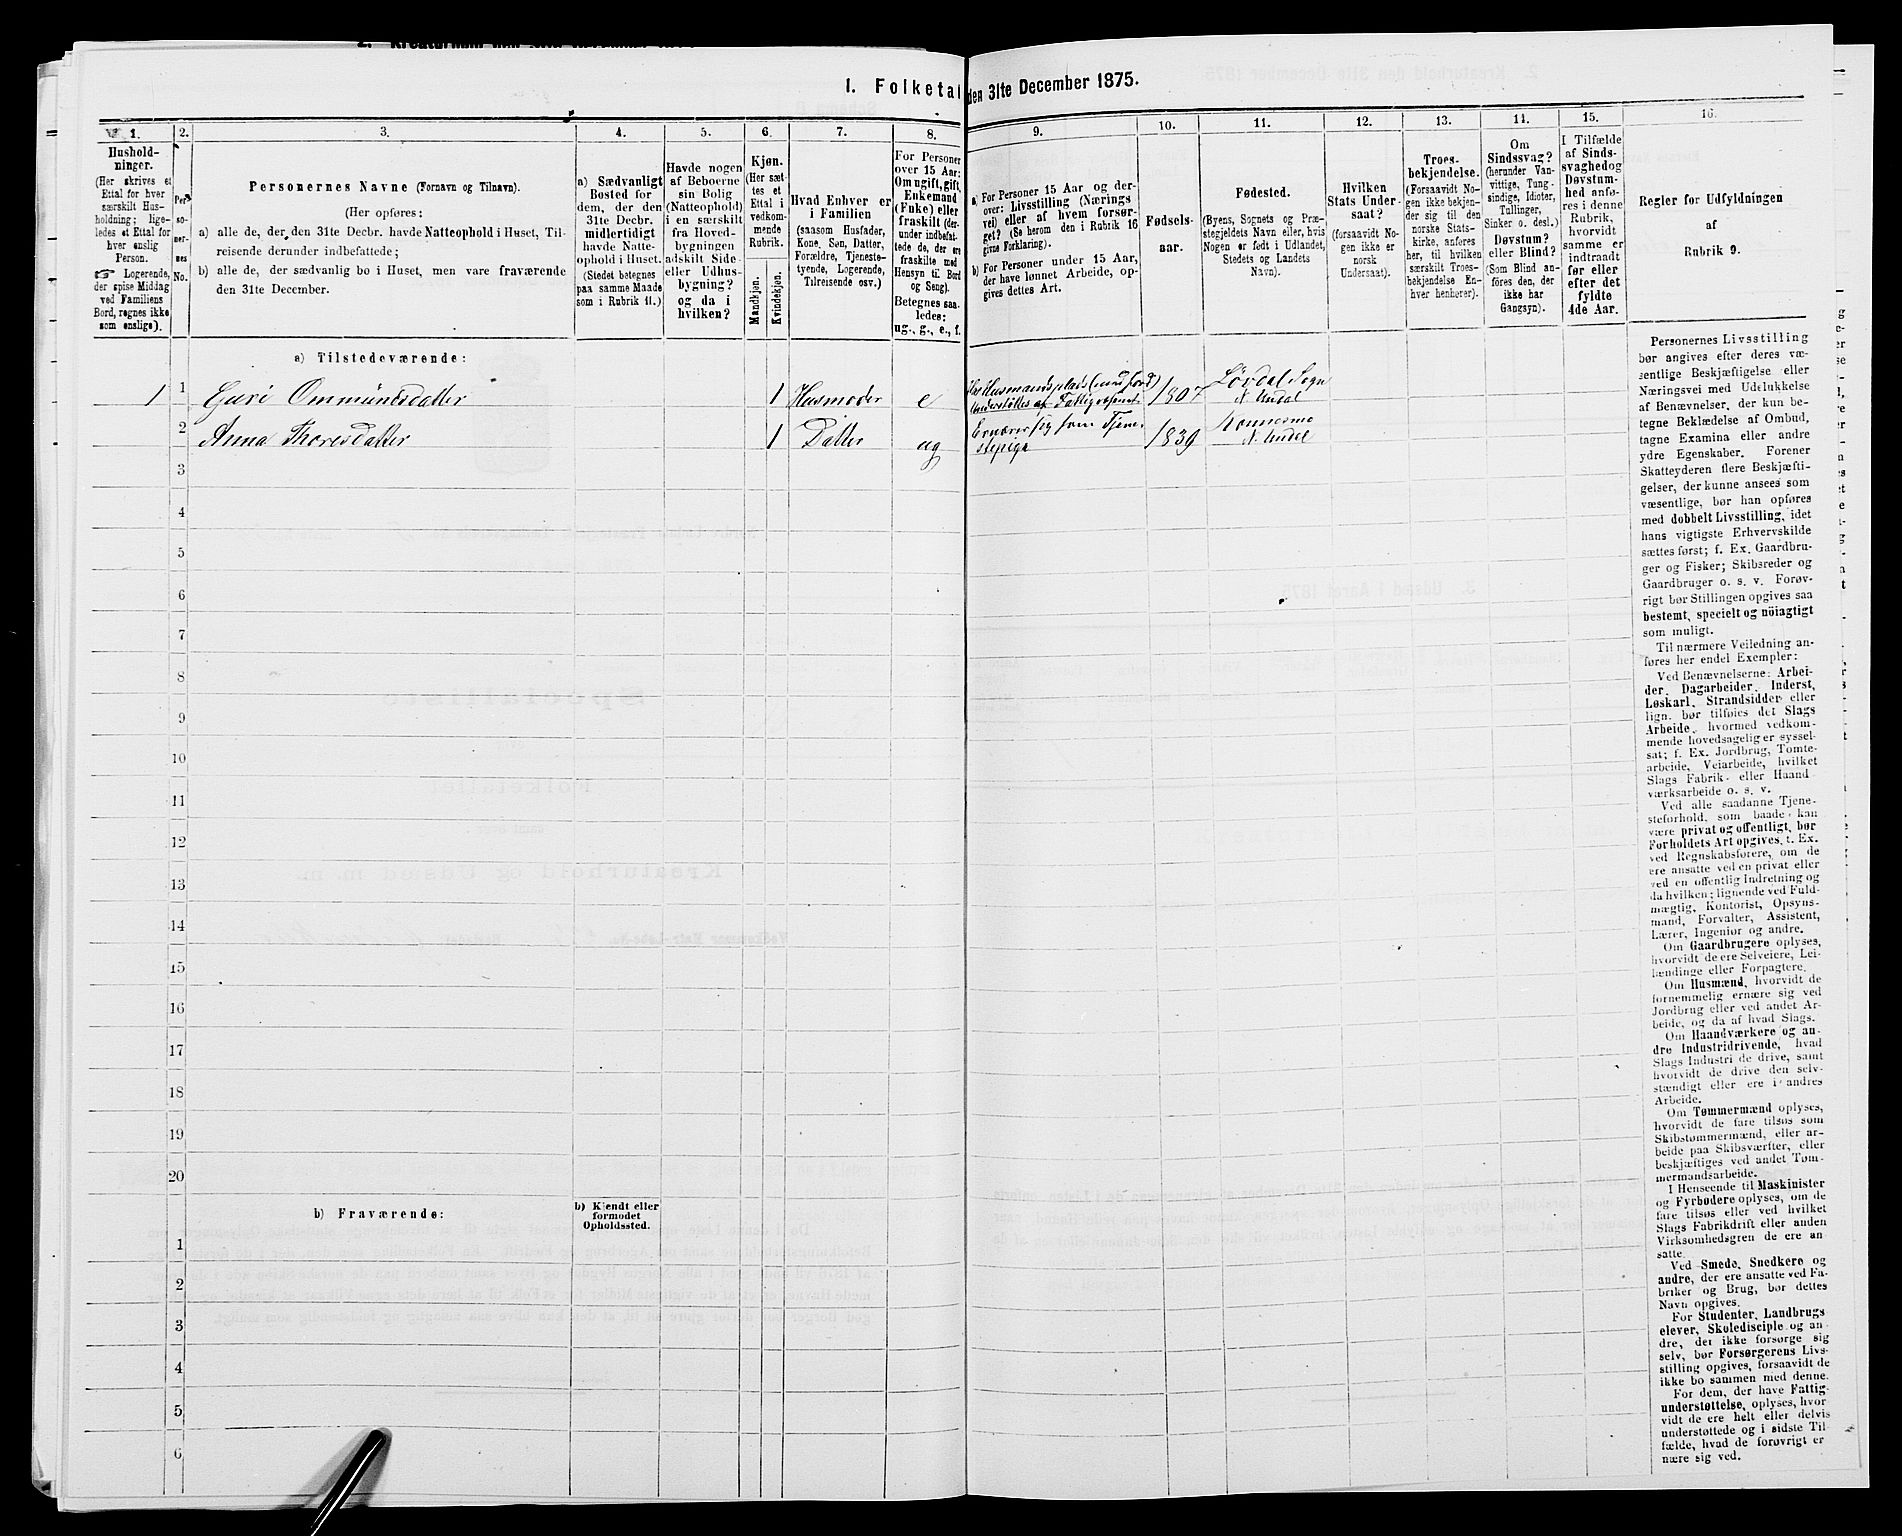 I. Folketal den 31te December 1875.
1.
2.
3.
4.
5.
6.
7.
8.
9.
10.
11.
12.
13.
14.
15.
16.
Hushold-
ninger.
(Her skrives et
Ettal for hver
særskilt Hus-
holdning; lige-
ledes et Ettal for
hver enslig
Person.
☞ Logerende,
der spise Middag
ved Familiens
Bord, regnes ikke
som enslige).
Per-
so-
ner-
nes
No.
Personernes Navne (Fornavn og Tilnavn).
(Her opføres:
a) alle de, der den 31te Decbr. havde Natteophold i Huset, Til-
reisende derunder indbefattede;
b) alle de, der sædvanlig bo i Huset, men vare fraværende
den 31te December.
a) Sædvanligt
Bosted for
dem, der den
31te Decbr.
midlertidigt
havde Natte-
ophold i Huset.
(Stedet betegnes
paa samme Maade
som i Rubrik 11.)
Havde nogen
af Beboerne
sin Bolig
(Natteophold)
i en særskilt
fra Hoved-
bygningen
adskilt Side-
eller Udhus-
bygning?
og da i
hvilken?
Kjøn.
(Her sæt-
tes et
Ettal i
vedkom-
mende
Rubrik.
Mandkjøn.
Kvindekjøn.
Hvad Enhver er
i Familien
(saasom Husfader,
Kone, Søn, Datter,
Forældre, Tjeneste-
tyende, Logerende,
Tilreisende osv.)
For Personer
over 15 Aar:
Om ugift, gift,
Enkemand
(Enke) eller
fraskilt (der-
under indbefat-
tede de, der ere
fraskilte med
Hensyn til Bord
og Seng).
Betegnes saa-
ledes:
ug., g., e., f.
a) For Personer 15 Aar og der-
over: Livsstilling (Nærings
vei) eller af hvem forsør-
get? (Se herom den i Rubrik 16
givne Forklaring).
b) For Personer under 15 Aar,
der have lønnet Arbeide, op-
gives dettes Art.
Fødsels-
aar.
Fødested.
(Byens, Sognets og Præ-
stegjeldets Navn eller, hvis
Nogen er født i Udlandet,
Stedets og Landets
Navn).
Hvilken
Stats Under-
saat?
(forsaavidt No-
gen ikke er
norsk
Undersaat).
Troes-
bekjendelse.
(Forsaavidt No-
gen ikke bekjen-
der sig til den
norske Stats-
kirke, anføres
her, til hvilken
særskilt Troes-
bekjendelse En-
hver henhører).
Om
Sindssvag?
(herunder Van-
vittige, Tung-
sindige, Idioter,
Tullinger,
Sinker o. desl.)
Døvstum?
eller Blind?
(Som Blind an-
føres den, der
ikke har
Gangsyn).
I Tilfælde
af Sinds-
svaghed og
Døvstum-
hed anfø-
res i denne
Rubrik,
hvorvidt
samme er
indtraadt
før eller
efter det
fyldte
4de Aar.
Regler for Udfyldningen
af
Rubrik 9.
a) Tilstedeværende:
1 1 Guri Ommundsdatter 1 Husmoder e Har Husmandsplads (med Jord) Understøttes af Fattigvæsenet 1807 Løvdal Sogn N. Undal
2 Anna Thoresdatter 1 Datter ug Ernærer sig som Tjenestepige 1839 Konnesmo N. Undal
3
4
5
6
7
8
9
10
11
12
13
14
15
16
17
18
19
20
b) Fraværende:
b) Kjendt eller
formodet
Opholdssted.
1
2
3
4
5
6
Personernes Livsstilling
bør angives efter deres væ-
sentlige Beskjæftigelse eller
Næringsvei med Udelukkelse
af Benævnelser, der kun be-
tegne Beklædelse af Ombud,
tagne Examina eller andre
ydre Egenskaber. Forener
Skatteyderen flere Beskjæfti-
gelser, der kunne ansees som
væsentlige, bør han opføres
med dobbelt Livsstilling, idet
hans vigtigste Erhvervskilde
sættes først; f. Ex. Gaardbru-
ger og Fisker; Skibsreder og
Gaardbruger o. s. v. Forøv-
rigt bør Stillingen opgives saa
bestemt, specielt og nöiagtigt
som muligt.
Til nærmere Veiledning an-
føres her endel Exempler:
Ved Benævnelserne: Arbei-
der, Dagarbeider, Inderst,
Løskarl, Strandsidder eller
lign. bør tilføies det Slags
Arbeide, hvormed vedkom-
mende hovedsagelig er syssel-
sat; f. Ex. Jordbrug, Tomte-
arbeide, Veiarbeide, hvilket
Slags Fabrik- eller Haand
værksarbeide o. s. v.
Ved alle saadanne Tjene-
steforhold, som baade kan
være privat og offentligt, bør
Forholdets Art opgives, f. Ex.
ved Regnskabsførere, om de
ere ansatte ved en privat eller
ved en offentlig Indretning og
da hvilken; lignende ved Fuld-
mægtig, Kontorist, Opsyns-
mand, Forvalter, Assistent,
Lærer, Ingeniør og andre.
Om Gaardbrugere oplyses,
hvorvidt de ere Selveiere, Lei-
lændinge eller Forpagtere.
Om Husmænd, hvorvidt de
fornemmelig ernære sig ved
Jordbrug eller ved andet Ar-
beide, og da af hvad Slags.
Om Haandværkere og an-
dre Industridrivende, hvad
Slags Industri de drive, samt
hvorvidt de drive den selv-
stændigt eller ere i andres
Arbeide.
Om Tømmermænd oplyses,
hvorvidt de fare tilsøs som
Skibstømmermænd, eller ar-
beide paa Skibsværfter, eller
beskjæftiges ved andet Tøm-
mermandsarbeide.
I Henseende til Maskinister
og Fyrbødere oplyses, om de
fare tilsøs eller ved hvilket
Slags Fabrikdrift eller anden
Virksomhedsgren de ere an-
satte.
Ved Smede, Snedkere og
andre, der ere ansatte ved Fa-
briker og Brug, bør dettes
Navn opgives.
For Studenter, Landbrugs
elever, Skoledisciple og an-
dre, der ikke forsørge sig
selv, bør Forsørgerens Livs-
stilling opgives, forsaavidt de
ikke bo sammen med denne.
For dem, der have Fattig-
understøttelse, oplyses, hvor
vidt de ere helt eller delvis
understøttede og i sidste Til-
fælde, hvad de forøvrigt er
nære sig ved.